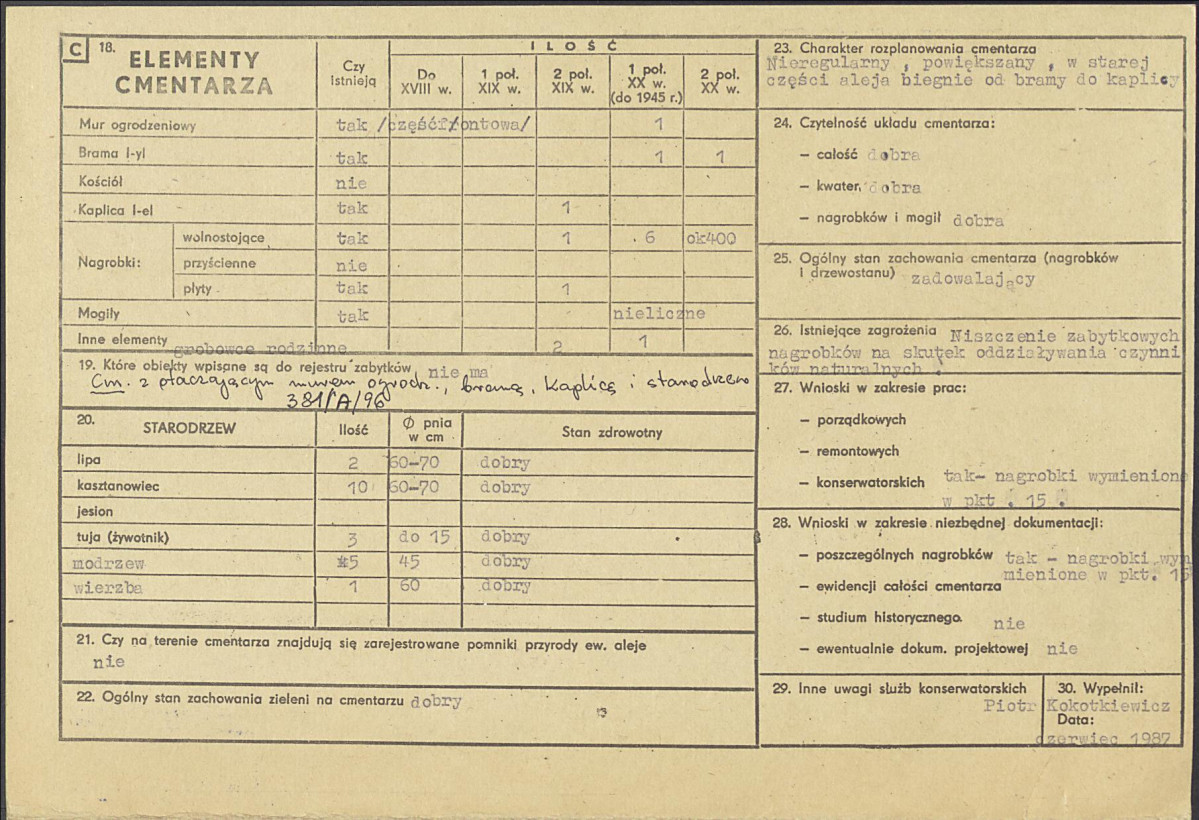 C 18. ELEMENTY CMENTARZA
Czy istnieją
ILOŚĆ
Do XVIII w.
1 poł. XIX w.
2 poł. XIX w.
1 poł. XX w. (do 1945 r.)
2 poł. XX w.
Mur ogrodzeniowy tak /część frontowa/ 1
Brama I-yl tak 1 1
Kościół nie
Kaplica I-el tak 1
Nagrobki:
wolnostojące tak 1 6 ok400
przyścienne nie
płyty tak 1
Mogiły tak nieliczne
Inne elementy grobowce rodzinne 2 1
19. Które obiekty wpisane są do rejestru zabytków nie ma
Cm. z otaczającym murem ogrodz., bramą, kaplicą i starodrzew
381/A/96
20. STARODRZEW Ilość Ø pnia w cm Stan zdrowotny
lipa 2 60-70 dobry
kasztanowiec 10 60-70 dobry
jesion
tuja (żywotnik) 3 do 15 dobry
modrzew 5 45 dobry
wierzba 1 60 dobry
21. Czy na terenie cmentarza znajdują się zarejestrowane pomniki przyrody ew. aleje
nie
22. Ogólny stan zachowania zieleni na cmentarzu dobry
23. Charakter rozplanowania cmentarza
Nieregularny , powiększany , w starej
części aleja biegnie od bramy do kaplicy
24. Czytelność układu cmentarza:
– całość dobra
– kwater, dobra
– nagrobków i mogił dobra
25. Ogólny stan zachowania cmentarza (nagrobków
i drzewostanu) zadowalający
26. Istniejące zagrożenia Niszczenie zabytkowych
nagrobków na skutek oddziaływania czynni
ków naturalnych .
27. Wnioski w zakresie prac:
– porządkowych
– remontowych
– konserwatorskich tak- nagrobki wymienione
w pkt . 15 .
28. Wnioski w zakresie niezbędnej dokumentacji:
– poszczególnych nagrobków tak - nagrobki wy
mienione w pkt. 15
– ewidencji całości cmentarza
– studium historycznego nie
– ewentualnie dokum. projektowej nie
29. Inne uwagi służb konserwatorskich
30. Wypełnił:
Piotr Kokotkiewicz
Data:
czerwiec 1987